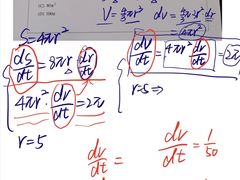 V = 4/3 πr³ dv = 4/3π·3r² dr
S=4πr²
ds/dt = 8πr dr/dt
dv/dt = 4πr² dv/dt = 2π
4πr² · dv/dt = 2π
r=5 ⇒
r=5
dv/dt =
dv/dt = 1/50